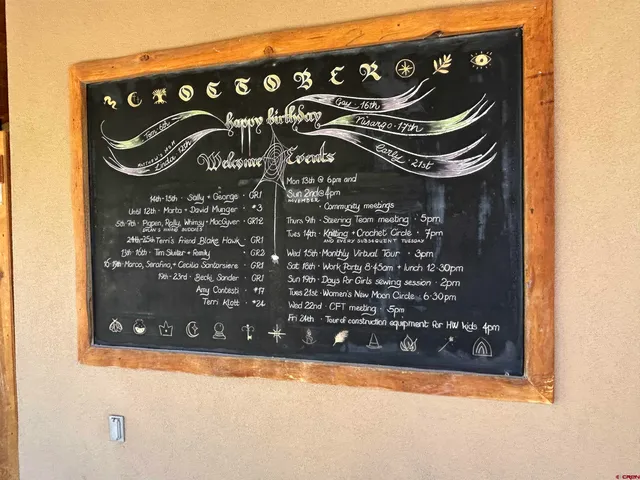 OCTOBER
happy birthday
Tom 6th
Linda 12th
Gay · 16th
Nisargo · 17th
Carly · 21st
Welcome
14th-15th · Sally + George · GR1
Until 12th · Marta + David Munger · #3
5th-7th · Pigpen, Rolly, Whimsy + MacGyver · GR1+2
24th-25th Terri's friend Blake Hawk · GR1
13th-16th · Tim Slutter + Family · GR2
16-19th · Marco, Serafina, + Cecilia Santorsiere · GR1
19th-23rd · Becki Sander · GR1
Amy Contesti · #17
Terri Klott · #24
Events
Mon 13th @ 6pm and
Sun 2nd @ 4pm
NOVEMBER
· Community meetings
Thurs 9th · Steering Team meeting · 5pm
Tues 14th · Knitting + Crochet Circle · 7pm
AND EVERY SUBSEQUENT TUESDAY
Wed 15th · Monthly Virtual Tour · 3pm
Sat 18th · Work Party 8:45am + lunch 12:30pm
Sun 19th · Days for Girls sewing session · 2pm
Tues 21st · Women's New Moon Circle · 6:30pm
Wed 22nd · CFT meeting · 5pm
Fri 24th · Tour of construction equipment for HW kids 4pm
© CREN